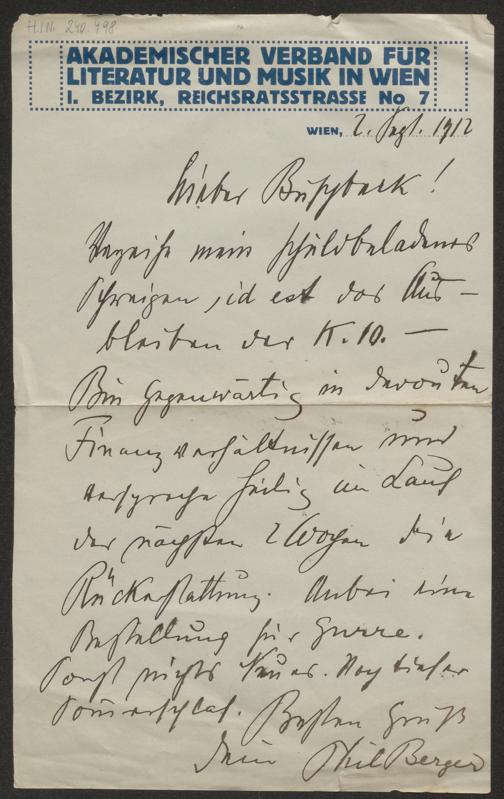 H.I.N. 240.498
AKADEMISCHER VERBAND FÜR
LITERATUR UND MUSIK IN WIEN
I. BEZIRK, REICHSRATSSTRASSE No 7
WIEN, 2. Sept. 1912
Lieber Buschbeck!
Verzeihe mein schuldbeladenes
Schweigen, id est das Aus-
bleiben der K. 10. —
Bin gegenwärtig in derouten
Finanzverhältnissen und
verspreche heilig im Lauf
der nächsten 2 Wochen die
Rückerstattung. Anbei eine
Bestellung für Gurre.
Sonst nichts Neues. Noch tiefer
Sommerschlaf. Besten Gruß
Dein Phil Berger